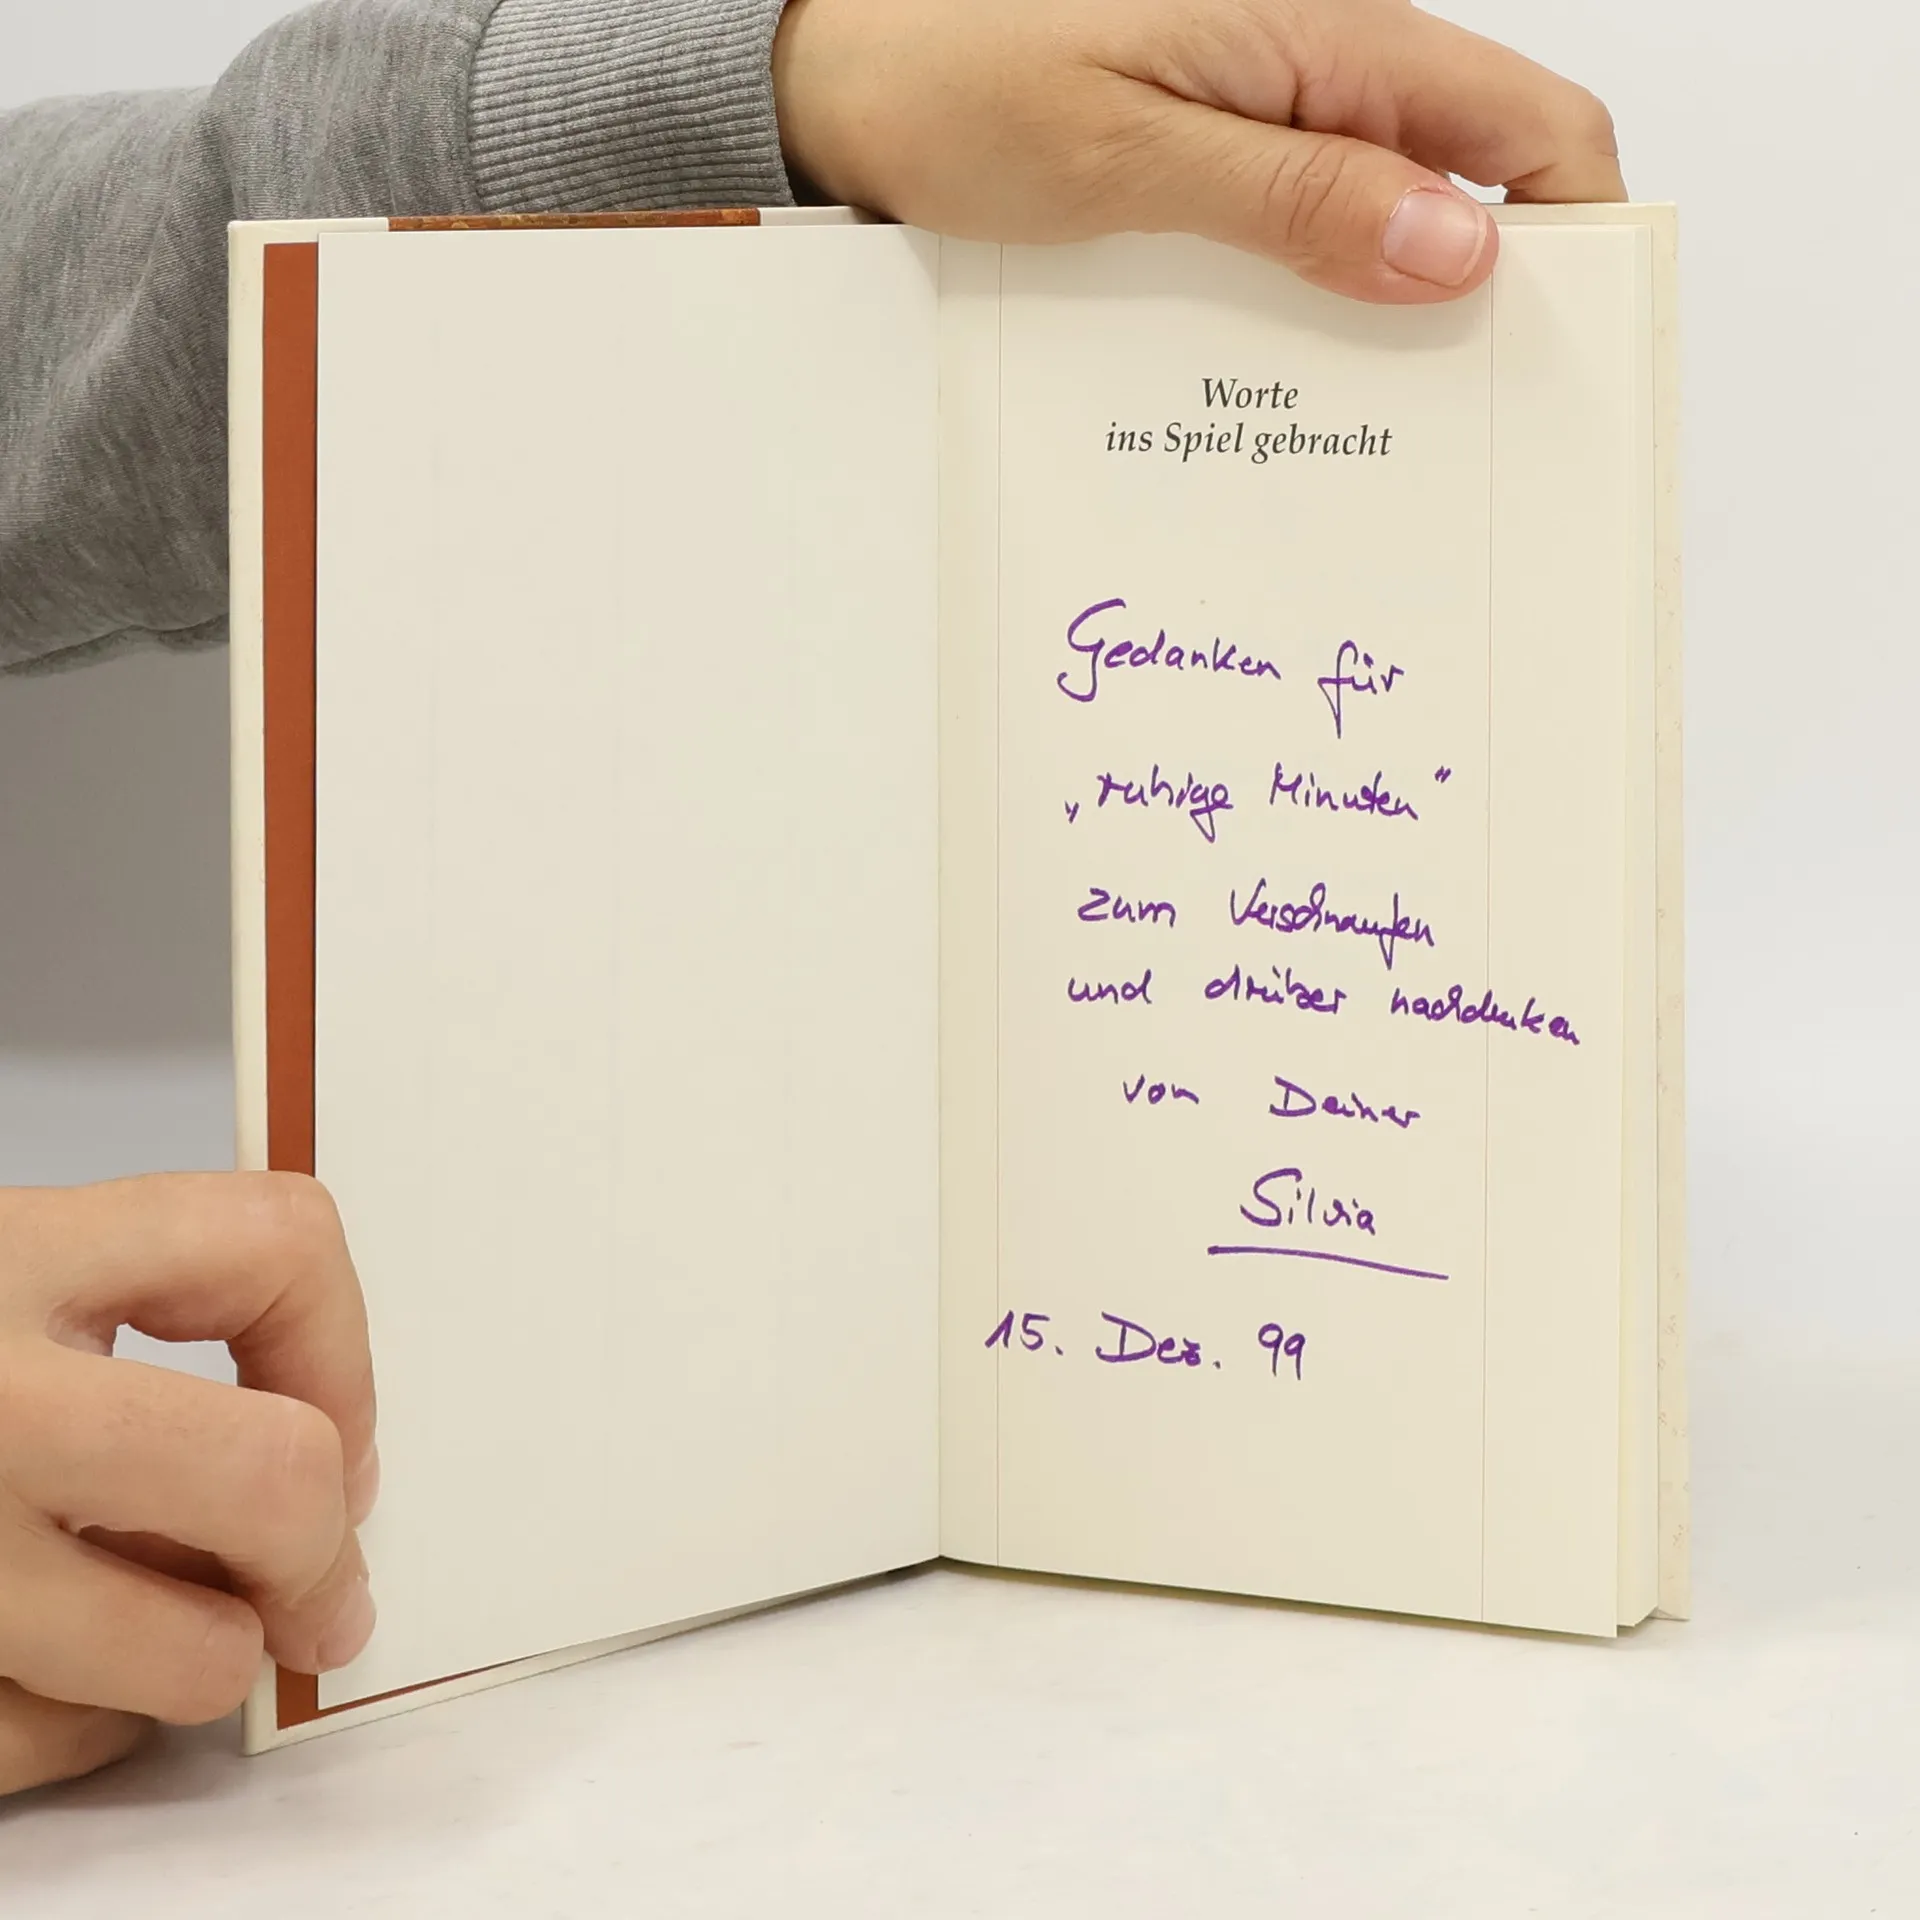 Worte
ins Spiel gebracht
Gedanken für
„ruhige Minuten“
zum Verschnaufen
und drüber nachdenken
von Deiner
Silvia
15. Dez. 99